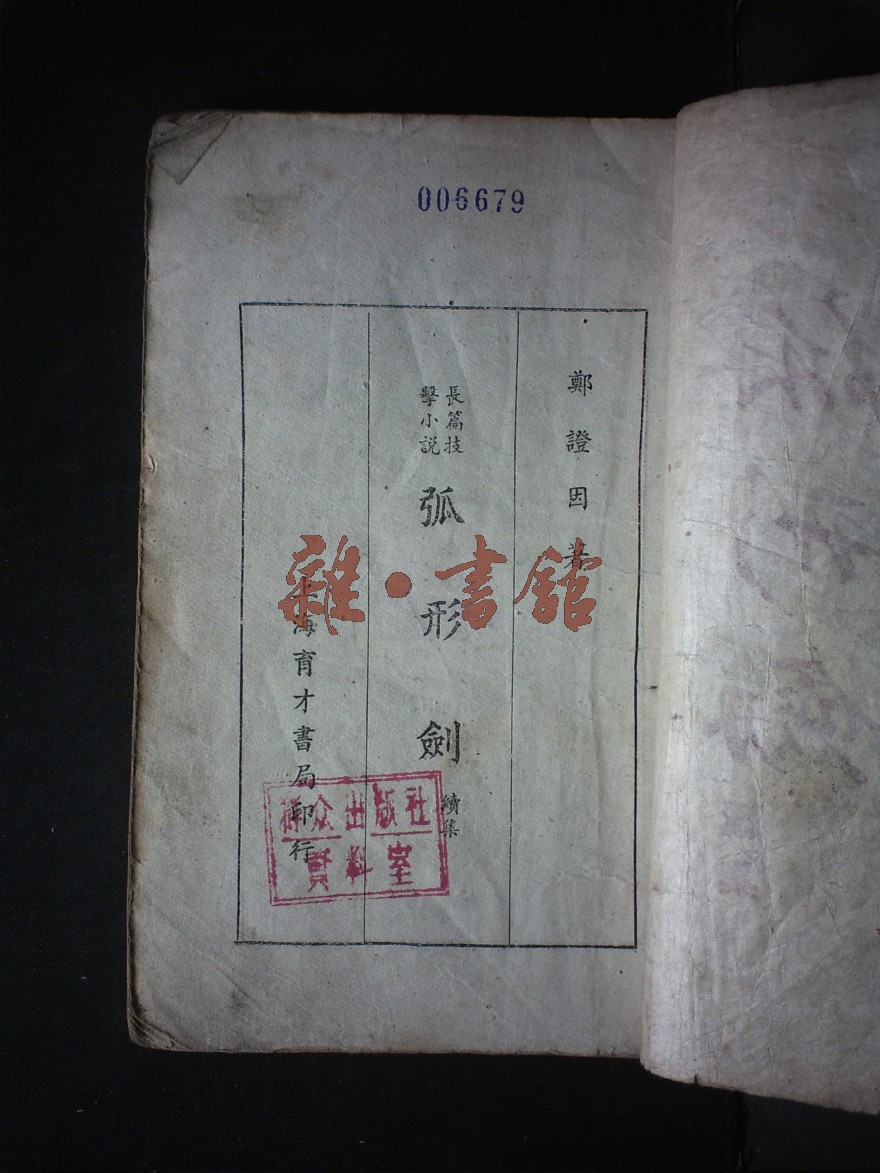 006679
鄭證因著
長篇技
擊小説
弧形劍
續集
上海育才書局印行
群众出版社
資料室
雜·書館